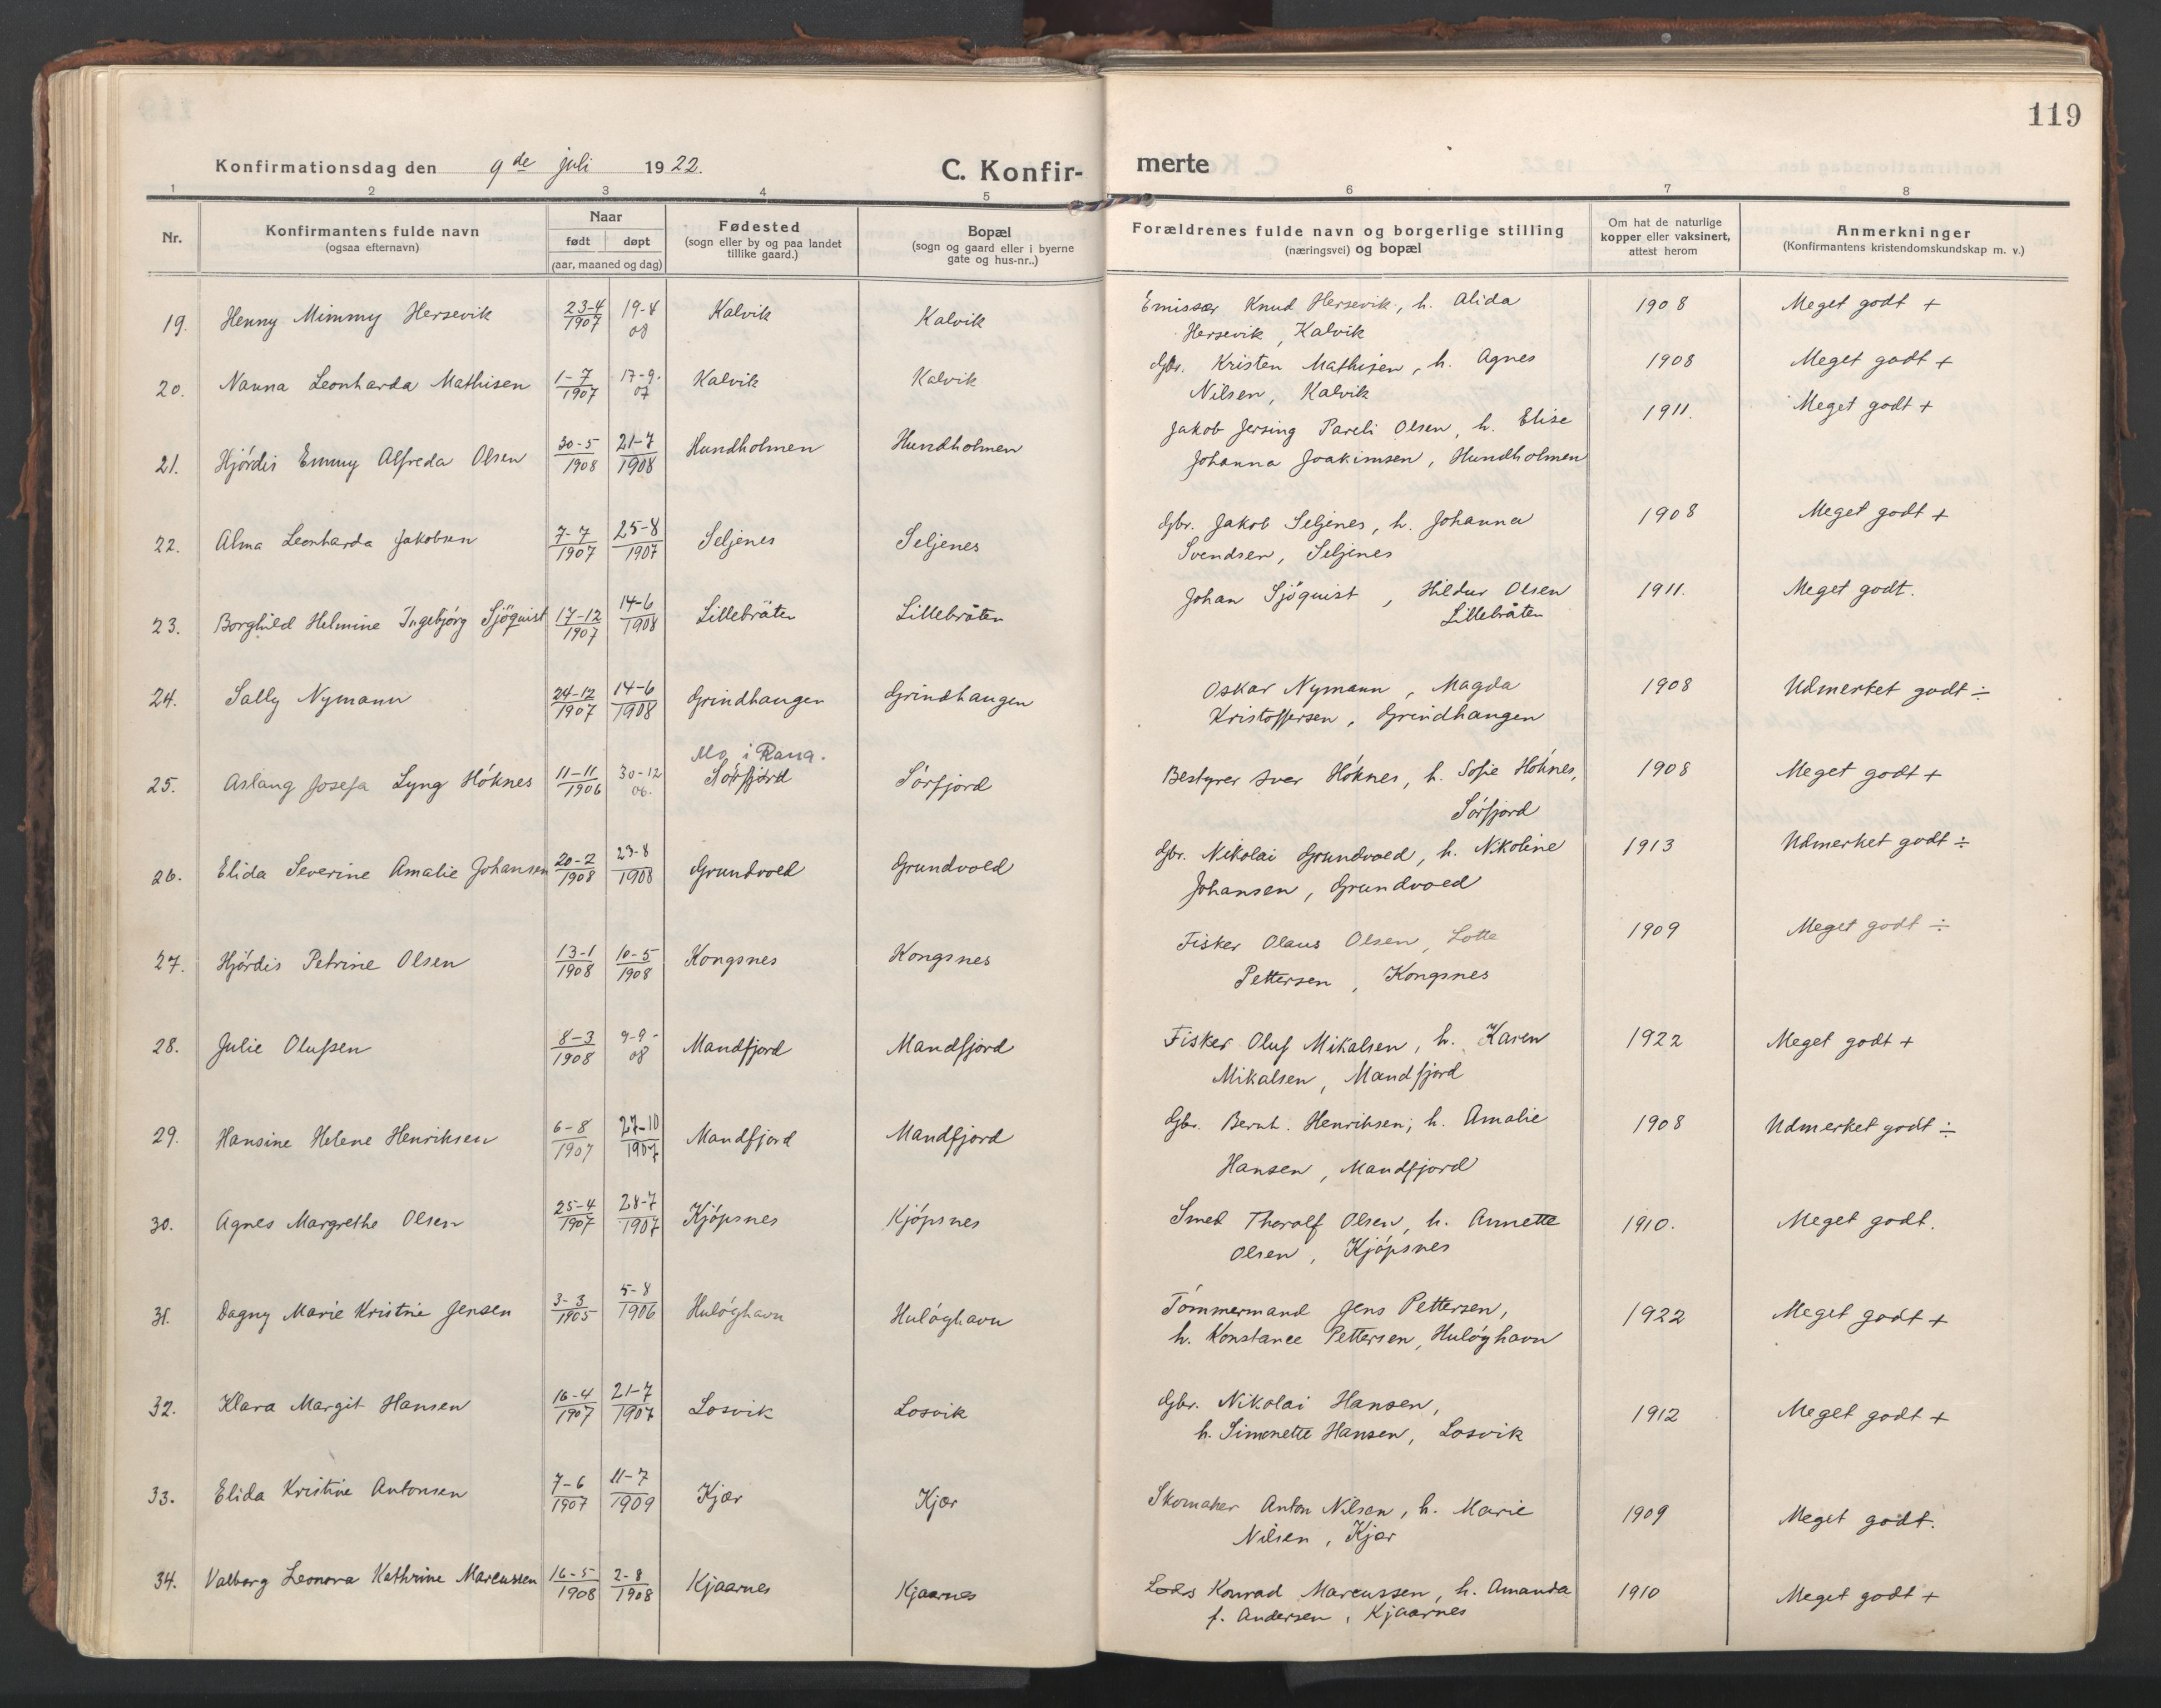 119
Konfirmationsdag den 9de juli 1922. C. Konfirmerte
1 2 3 4 5 6 7 8
Nr.
Konfirmantens fulde navn
(ogsaa efternavn)
Naar
født døpt
(aar, maaned og dag)
Fødested
(sogn eller by og paa landet
tillike gaard.)
Bopæl
(sogn og gaard eller i byerne
gate og hus-nr..)
Forældrenes fulde navn og borgerlige stilling
(næringsvei) og bopæl
Om hat de naturlige
kopper eller vaksinert,
attest herom
Anmerkninger
(Konfirmantens kristendomskundskap m. v.)
19. Henny Mimmy Hersevik 23-4 1907 19-4 08 Kalvik Kalvik Emissær Knud Hersevik, h. Alida 1908 Meget godt +
Hersevik, Kalvik
20. Nanna Leonharda Mathisen 1-7 1907 17-9. 07 Kalvik Kalvik Gbr. Kristen Mathisen, h. Agnes 1908 Meget godt +
Nilsen, Kalvik
21. Hjördis Emmy Alfreda Olsen 30-5 1908 21-7 1908 Hundholmen Hundholmen Jakob Jersing Pareli Olsen, h. Elise 1911. Meget godt +
Johanna Joakimsen, Hundholmen
22. Alma Leonharda Jakobsen 7-7 1907 25-8 1907 Seljenes Seljenes Gbr. Jakob Seljenes, h. Johanna 1908 Meget godt +
Svendsen, Seljenes
23. Borghild Helmine Ingebjörg Sjöquist 17-12 1907 14-6 1908 Lillebråten Lillebråten Johan Sjöquist, Hildur Olsen 1911. Meget godt.
Lillebråten
24. Sally Nymann 24-12 1907 14-6 1908 Grindhaugen Grindhaugen Oskar Nymann, Magda 1908 Udmerket godt ÷
Kristoffersen, Grindhaugen
Mo i Rana.
25. Aslaug Josefa Lyng Höknes 11-11 1906 30-12 06. Sörfjord Sörfjord Bestyrer Iver Höknes, h. Sofie Höknes, 1908 Meget godt +
Sörfjord
26. Elida Severine Amalie Johansen 20-2 1908 23-8 1908 Grundvold Grundvold Gbr. Nikolai Grundvold, h. Nikoline 1913 Udmerket godt ÷
Johansen, Grundvold
27. Hjördis Petrine Olsen 13-1 1908 10-5 1908 Kongsnes Kongsnes Fisker Olaus Olsen, Lotte 1909 Meget godt ÷
Pettersen, Kongsnes
28. Julie Olufsen 8-3 1908 9-9- 08 Mandfjord Mandfjord Fisker Oluf Mikalsen, h. Karen 1922 Meget godt +
Mikalsen, Mandfjord
29. Hansine Helene Henriksen 6-8 1907 27-10 1907 Mandfjord Mandfjord Gbr. Bernt. Henriksen, h. Amalie 1908 Udmerket godt ÷
Hansen, Mandfjord
30. Agnes Margrethe Olsen 25-4 1907 28-7 1907 Kjöpsnes Kjöpsnes Smed Thoralf Olsen, h. Annette 1910. Meget godt.
Olsen, Kjöpsnes
31. Dagny Marie Kristine Jensen 3-3 1905 5-8 1906 Hulöyhavn Hulöyhavn Tömmermand Jens Pettersen, 1922 Meget godt +
h. Konstance Pettersen, Hulöyhavn
32. Klara Margit Hansen 16-4 1907 21-7 1907 Losvik Losvik Gbr. Nikolai Hansen, 1912 Meget godt +
h. Simonette Hansen, Losvik
33. Elida Kristine Antonsen 7-6 1907 11-7 1909 Kjær Kjær Skomaker Anton Nilsen, h. Marie 1909 Meget godt.
Nilsen, Kjær
34. Valborg Leonora Kathrine Marcussen 16-5 1908 2-8 1908 Kjaarnes Kjaarnes Lods Konrad Marcussen, h. Amanda 1910 Meget godt +
f. Andersen, Kjaarnes